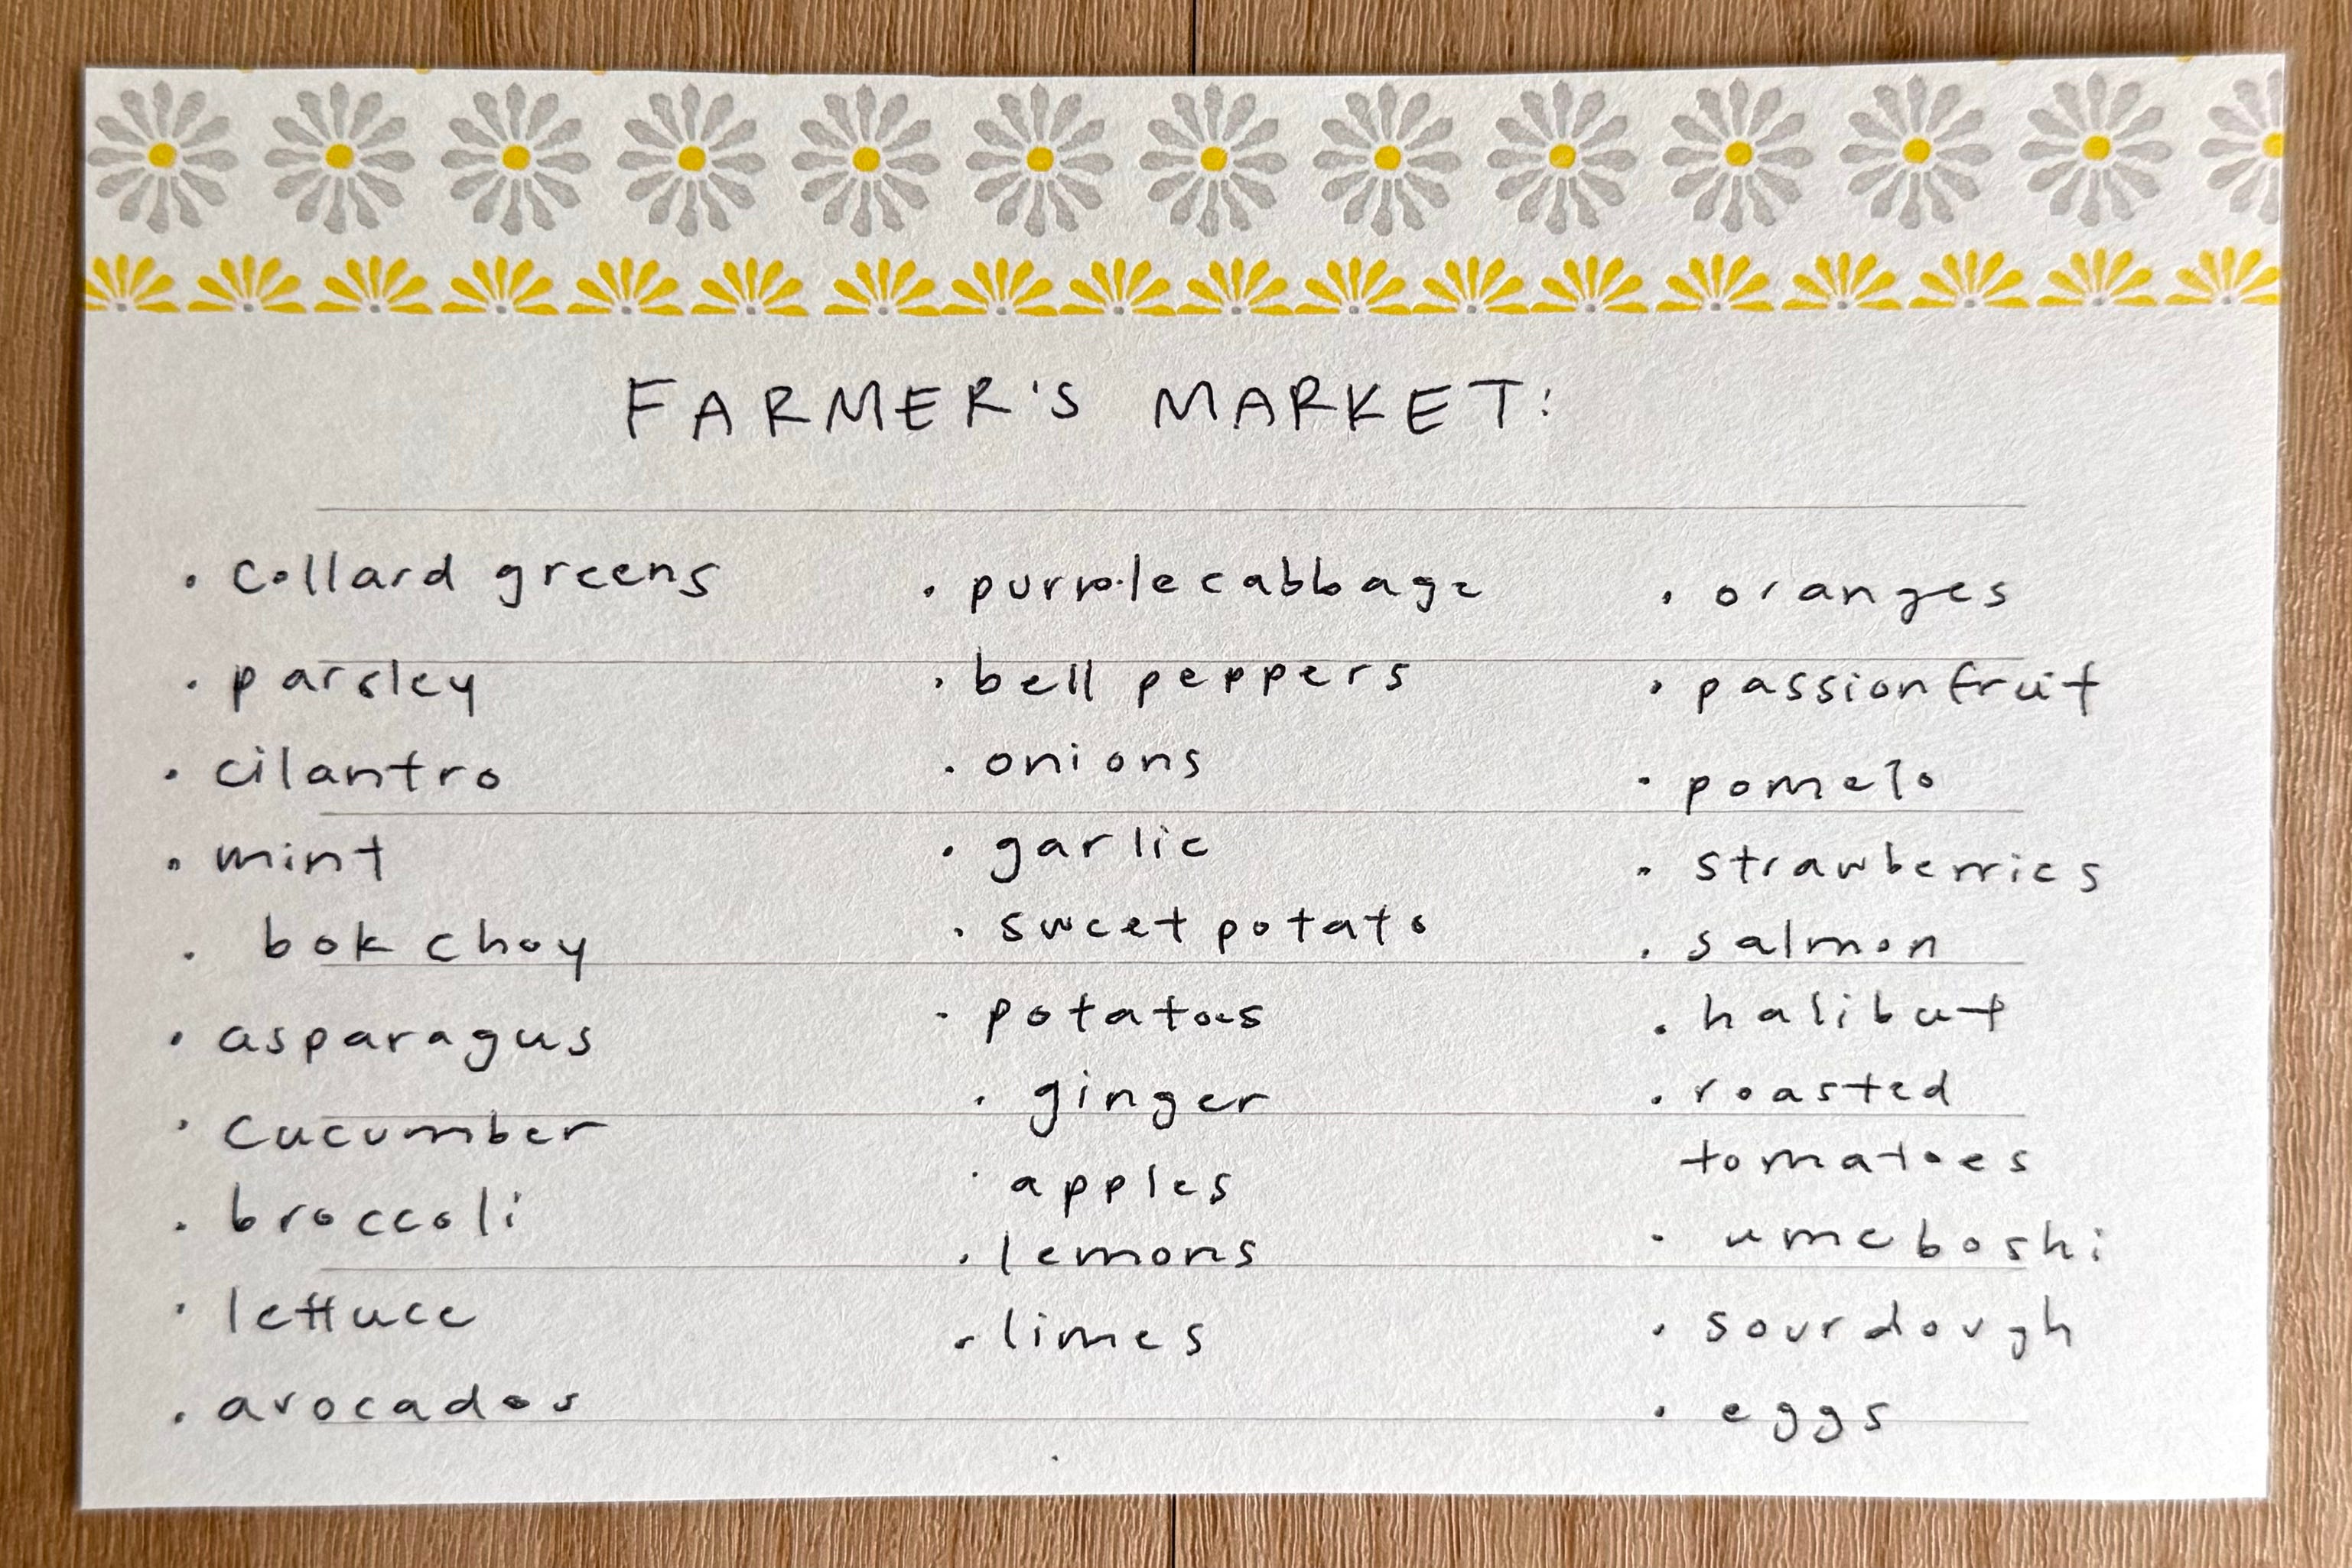 FARMER'S MARKET:
• collard greens
• parsley
• cilantro
• mint
• bok choy
• asparagus
• cucumber
• broccoli
• lettuce
• avocados
• purple cabbage
• bell peppers
• onions
• garlic
• sweet potato
• potatoes
• ginger
• apples
• lemons
• limes
• oranges
• passionfruit
• pomelo
• strawberries
• salmon
• halibut
• roasted
tomatoes
• umeboshi
• sourdough
• eggs